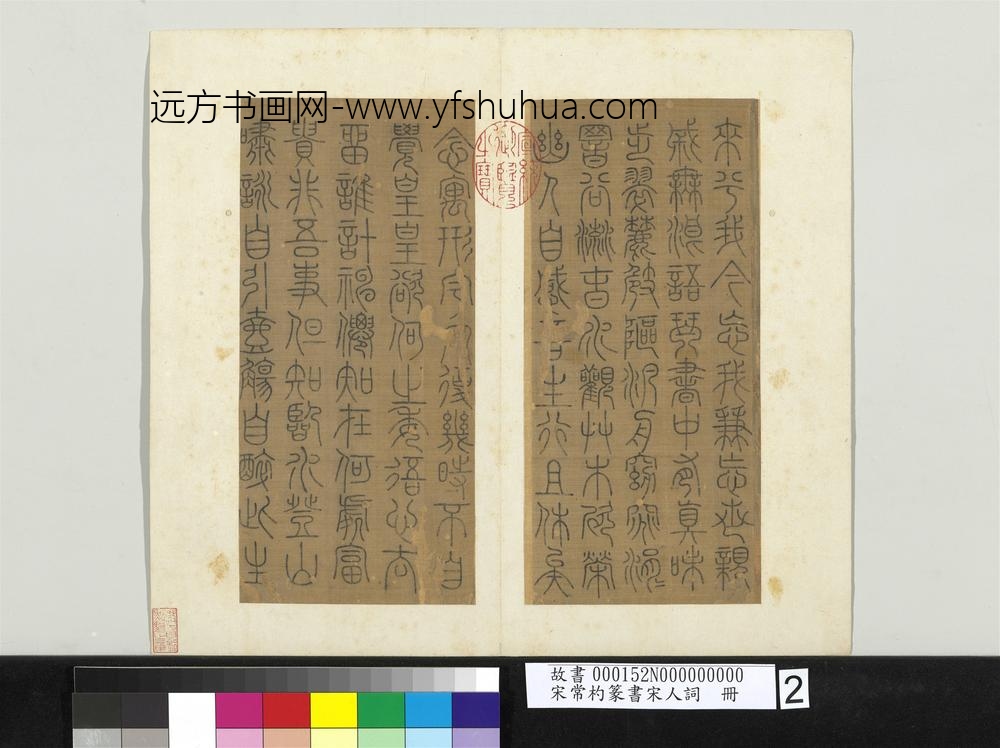 远方书画网-www.yfshuhua.com
來兮我今忘我兼忘世親
戚無浪語琴書中有真味
步翠麓崎嶇汎舟窈窕涓
暗谷流春水觀草木欣榮
幽人自感吾生行且休矣
宣統御覽之寶
念寓形宇內復幾時不自
覺皇皇欲何之委吾心去
留誰計神僊知在何處富
貴非吾事但知臨水登山
嘯詠自引壺觴自醉此生
故書 000152N000000000
宋常杓篆書宋人詞 冊
2